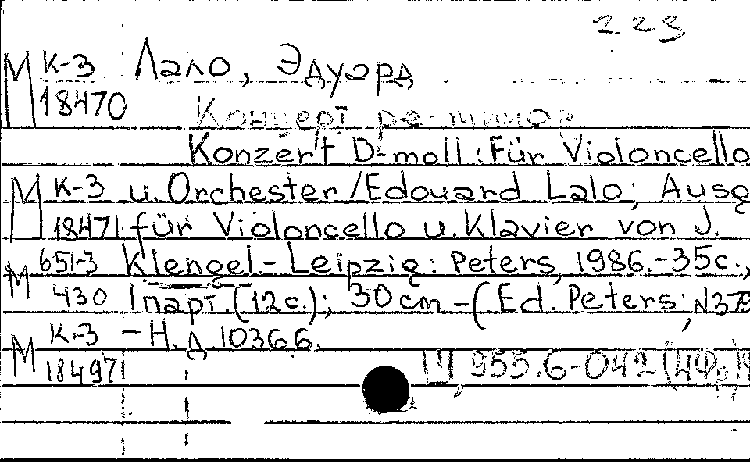 223
М К-3 Лало, Эдуард
18470
Концерт ре-минор
Konzert D-moll: Für Violoncello
М К-3 u. Orchester/Edouard Lalo; Ausg
18471 für Violoncello u. Klavier von J.
М 651-3 Klengel.-Leipzig: Peters, 1986.-35с.,
430 1парт.(12с.); 30 cm-(Ed. Peters; N37
М К-3 -Н.д. 10366.
18497
955.6-042